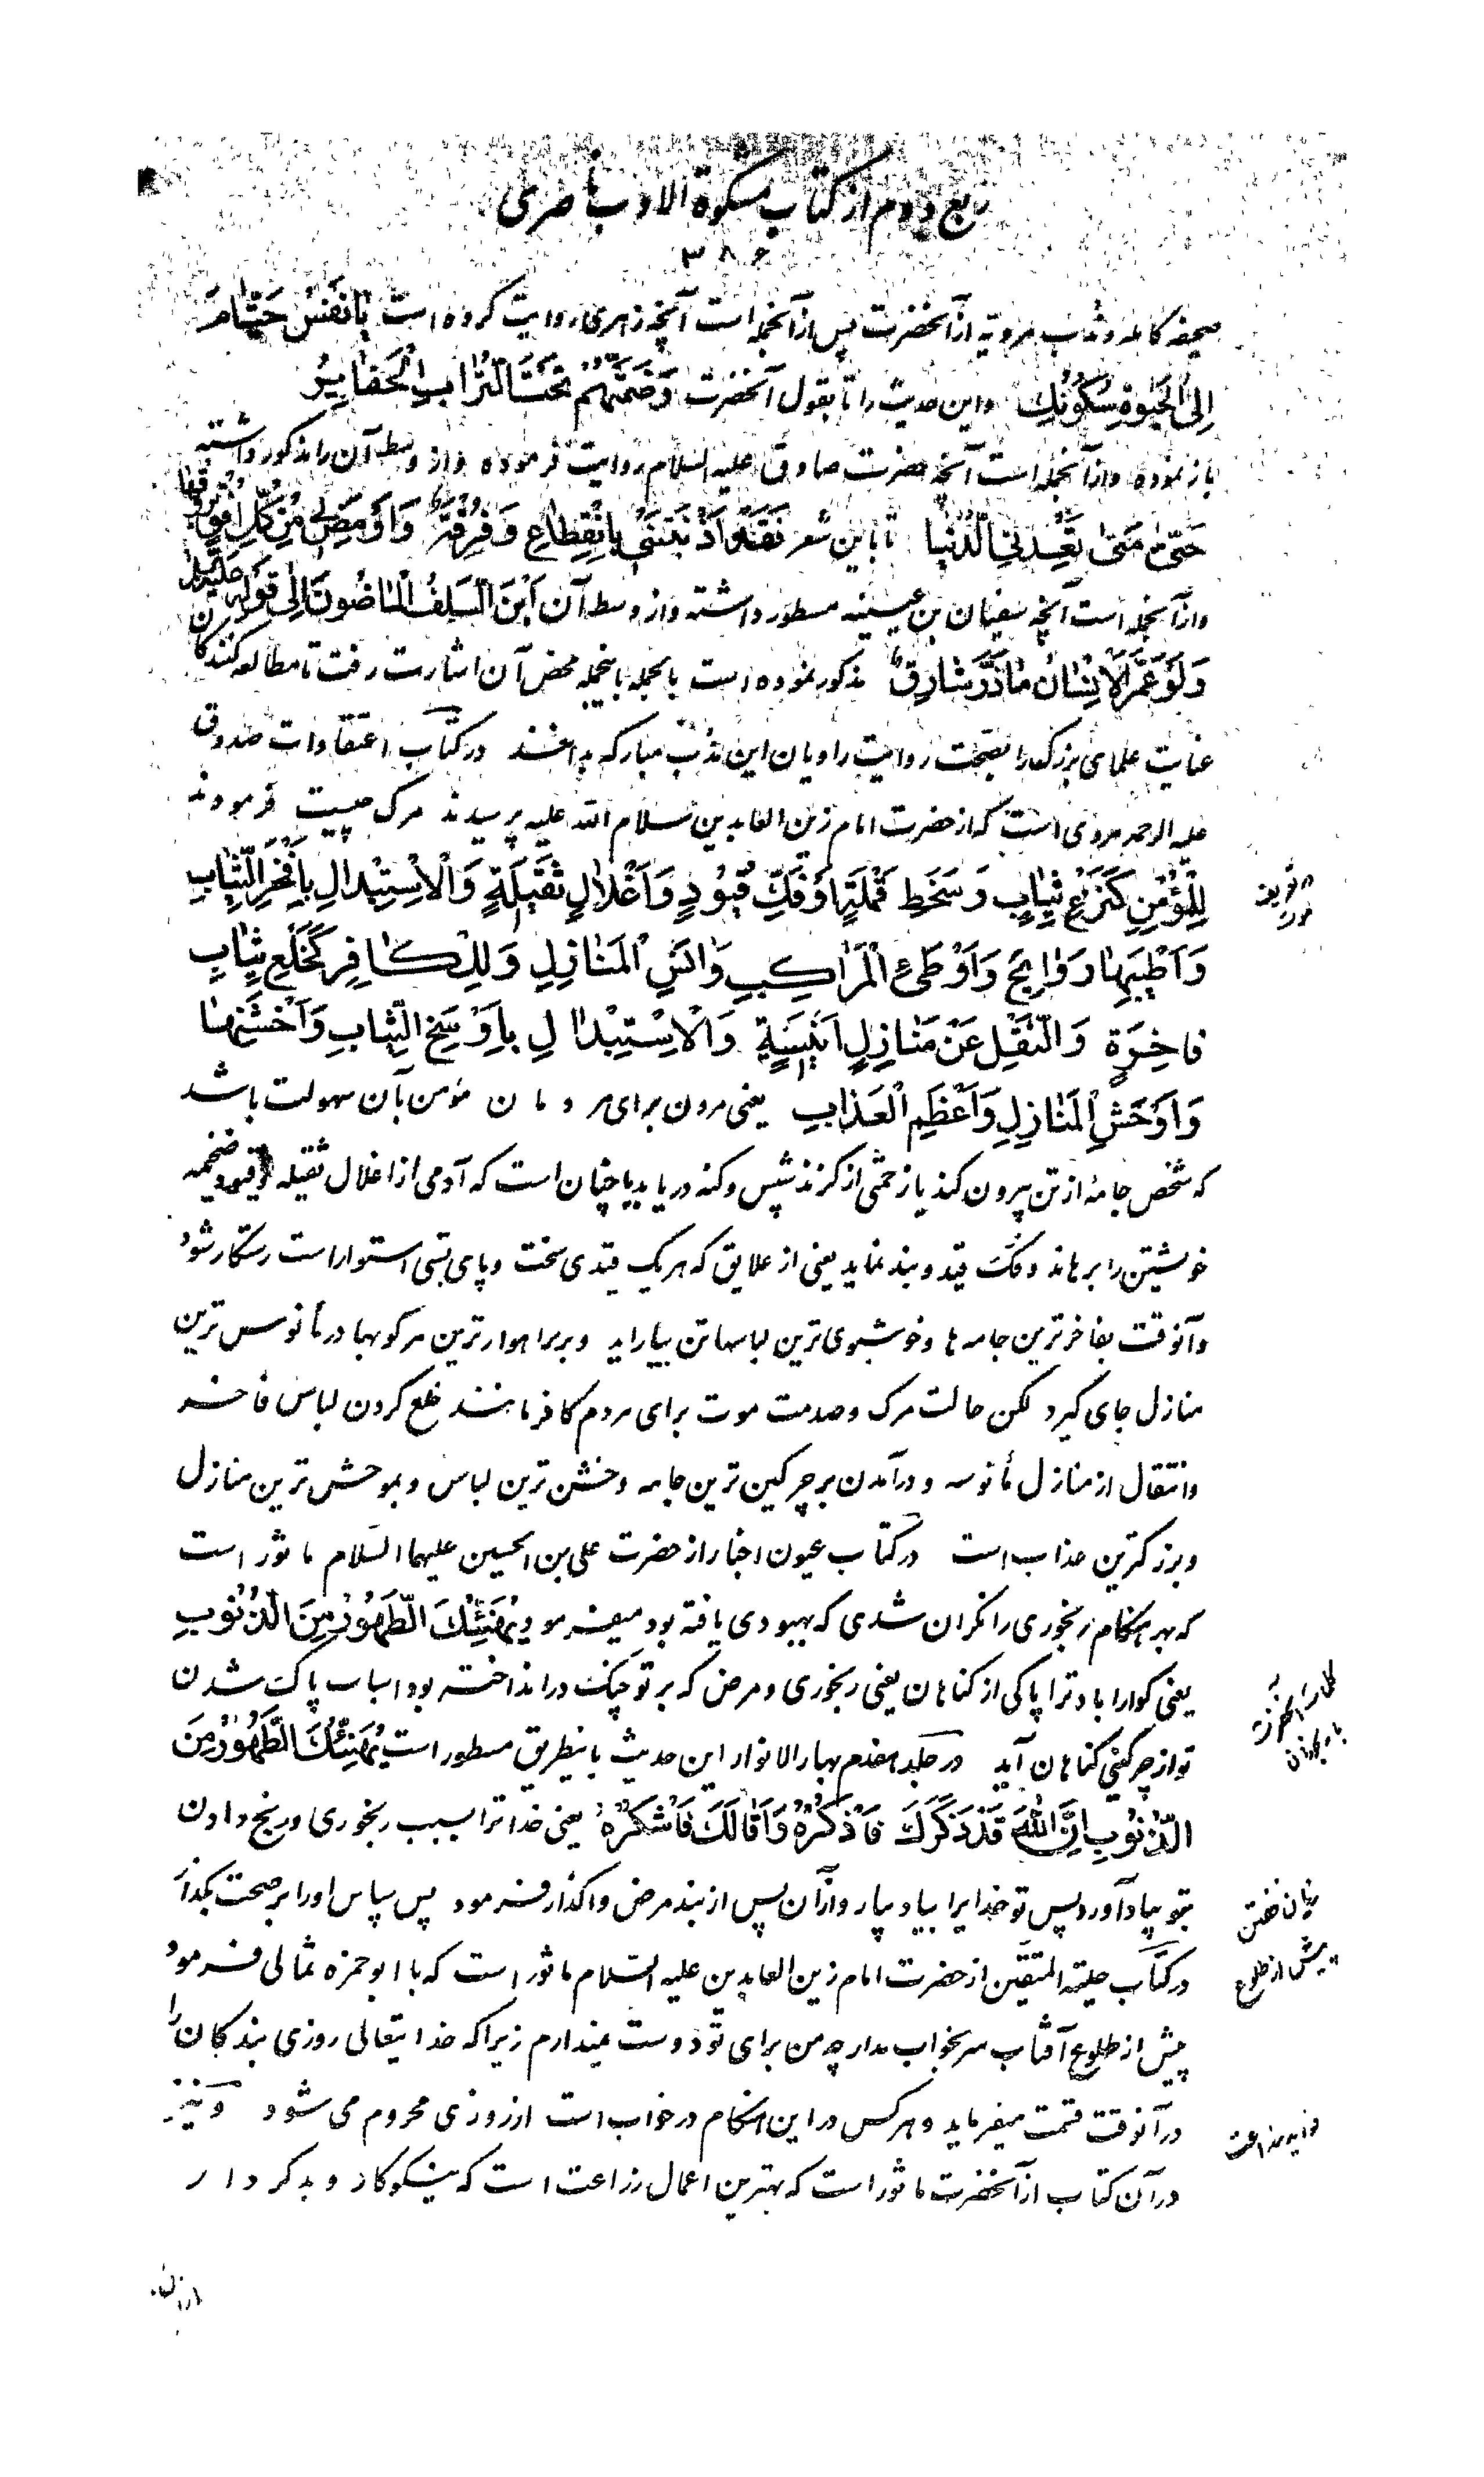 ربع دوم از کتاب مشکوة الادب ناصری
۳۸۶
صحیفه کامله و ندب مرویه از آنحضرت پس از آنجمله است آنچه زهری روایت کرده است یا نَفْسُ حَتّامَ
اِلَی الْحَیٰوةِ سُکُونُكِ واین حدیث را تا بقول آنحضرت وَضَمَّتْهُمْ تَحْتَ التُّرابِ الْحَفایِرُ
باز نموده وازآنجمله است آنچه حضرت صادق علیه السلام روایت فرموده و از وسط آن را مذکور داشته
حَتّیٰ مَتیٰ تَعِدُنِی الدُّنْیا تا باین شعر فَقَدْ اٰذَنَتْنی بِانْقِطاعٍ وَفُرْقَةٍ وَاَوْمَضَ لی مِنْ کُلِّ اُفْقٍ بُرُوقُها
وازآنجمله است آنچه سفیان بن عیینه مسطور داشته واز وسط آن اَیْنَ السَّلَفُ الْماضُونَ اِلی قَوْلِهِ
وَلَوْ عَمَّرَ الْاِنْسانُ ماذَرَّ شارِقٌ مذکور نموده است بالجمله باینجمله محض آن اشارت رفت تا مطالعه کنندگان
عنایت علمای بزرک را بصحت روایت راویان این ندب مبارکه بدانند در کتاب اعتقادات صدوق
علیه الرحمه مروی است که از حضرت امام زین العابدین سلام الله علیه پرسیدند مرک چیست فرمودند
لِلْمُؤْمِنِ کَنَزْعِ ثِیابٍ وَسَخَطِ قَمْلَةٍ وَفَكِّ قُیُودٍ وَاَغْلالٍ ثَقیلَةٍ وَالْاِسْتِبْدالِ بِاَفْخَرِ الثِّیابِ
وَاَطْیَبِها رَوایِحَ وَاَوْطَیءِ الْمَراکِبِ وَانَسِ الْمَنازِلِ وَلِلْکافِرِ کَخَلْعِ ثِیابٍ
فاخِرَةٍ وَالنَّقْلِ عَنْ مَنازِلٍ اَنیسَةٍ وَالْاِسْتِبْدالِ بِاَوْسَخِ الثِّیابِ وَاَخْشَنِها
وَاَوْحَشِ الْمَنازِلِ وَاَعْظَمِ الْعَذابِ یعنی مردن برای مردمان مؤمن بآن سهولت باشد
که شخص جامهٔ از تن بیرون کند یا زحمتی از کزند شپس وکنه دریابد یا چنان است که آدمی از اغلال ثقیله وقیود ضخیمه
خویشتن را برهاند وفکّ قید وبند نماید یعنی از علایق که هر یک قیدی سخت وپای بستی استوار است رستکار شود
وآنوقت بفاخرترین جامه ها وخوشبوی ترین لباسها تن بیاراید وبر راهوارترین مرکوبها در مأنوس ترین
منازل جای کیرد لکن حالت مرک وصدمت موت برای مردم کافر مانند خلع کردن لباس فاخر
وانتقال از منازل مأنوسه و درآمدن بر چرکین ترین جامه وخشن ترین لباس وبموحش ترین منازل
وبزرکترین عذاب است در کتاب عیون اخبار از حضرت علی بن الحسین علیهما السلام ماثور است
که بهر هنکام رنجوری را نکران شدی که بهبودی یافته بود میفرمود یُهَنِّئُكَ الطَّهُورُ مِنَ الذُّنُوبِ
یعنی کوارا باد ترا پاکی از کناهان یعنی رنجوری ومرض که بر تو چنک در انداخته بود اسباب پاک شدن
تو از چرکینی کناهان آید در جلد هفدهم بهار الانوار این حدیث باینطریق مسطور است یُهَنِّئُكَ الطَّهُورُ مِنَ
الذُّنُوبِ اِنَّ اللّٰهَ قَدْ ذَکَرَكَ فَاذْکُرْهُ وَاَقالَكَ فَاشْکُرْهُ یعنی خدا ترا بسبب رنجوری ورنج دادن
بتو بیاد آورد پس تو خدایرا بیاد بیار وازآن پس از بند مرض واکذار فرمود پس سپاس اورا بر صحت بکذار
در کتاب حلیة المتقین از حضرت امام زین العابدین علیه السلام ماثور است که با ابو حمزه ثمالی فرمود
پیش از طلوع آفتاب سر بخواب مدار چه من برای تو دوست نمیدارم زیرا که خدایتعالی روزی بندکان را
در آنوقت قسمت میفرماید و هر کس در این هنکام در خواب است از روزی محروم می شود ونیز
در آن کتاب از آنحضرت ماثور است که بهترین اعمال زراعت است که نیکوکار وبدکردار
در تعریف
موت
کلمات آنحضرت
با رنجوران
زیان خفتن
پیش از طلوع
فواید زراعت
از آن